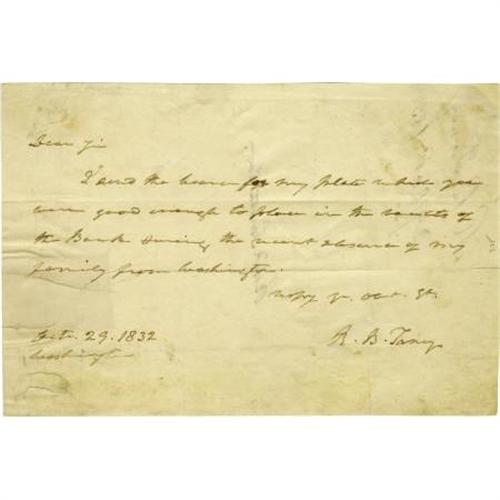 Dear Sir
I send the bearer for my plate which you
were good enough to place in the vaults of
the Bank during the recent absence of my
family from Washington.
yr. obt. St.
R. B. Taney
Oct. 29. 1832
Washington